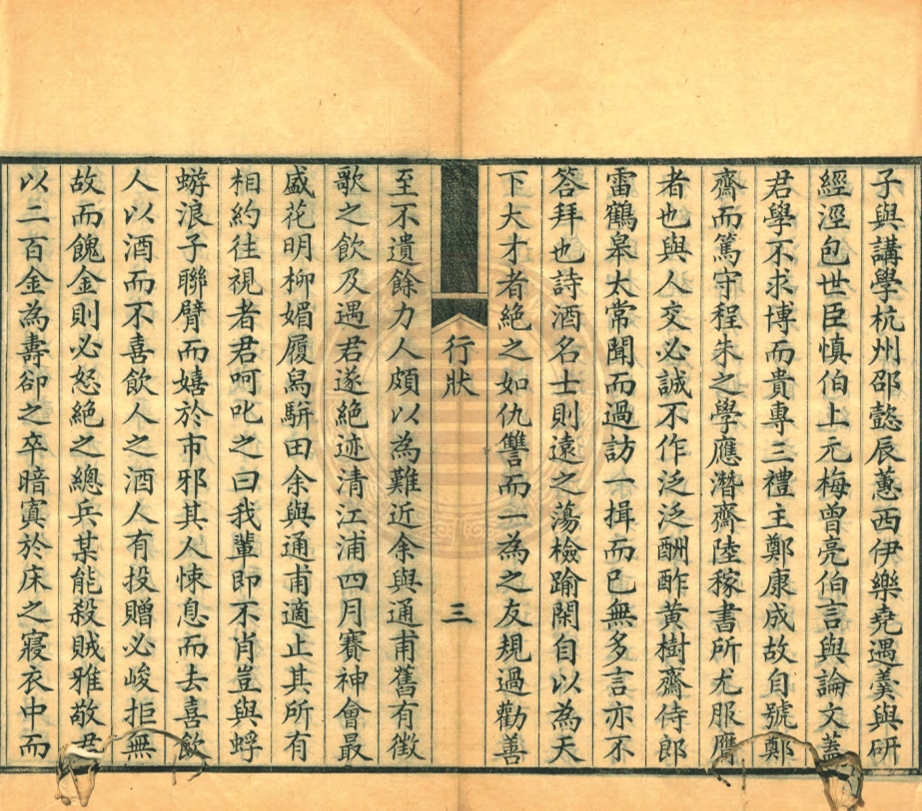 子與講學杭州邵懿辰蕙西伊樂堯遇羹與研
經涇包世臣慎伯上元梅曾亮伯言與論文蓋
君學不求博而貴專三禮主鄭康成故自號鄭
齋而篤守程朱之學應潛齋陸稼書所尤服膺
者也與人交必誠不作泛泛酬酢黃樹齋侍郎
雷鶴皋太常聞而過訪一揖而已無多言亦不
答拜也詩酒名士則遠之蕩檢踰閑自以為天
下大才者絕之如仇讐而一為之友規過勸善
行狀
三
至不遺餘力人頗以為難近余與通甫舊有徵
歌之飲及遇君遂絕迹清江浦四月賽神會最
盛花明柳媚履舄駢田余與通甫適止其所有
相約往視者君呵叱之曰我輩即不肖豈與蜉
蝣浪子聯臂而嬉於市邪其人悚息而去喜飲
人以酒而不喜飲人之酒人有投贈必峻拒無
故而餽金則必怒絕之總兵某能殺賊雅敬君
以二百金為壽卻之卒暗寘於床之寢衣中而